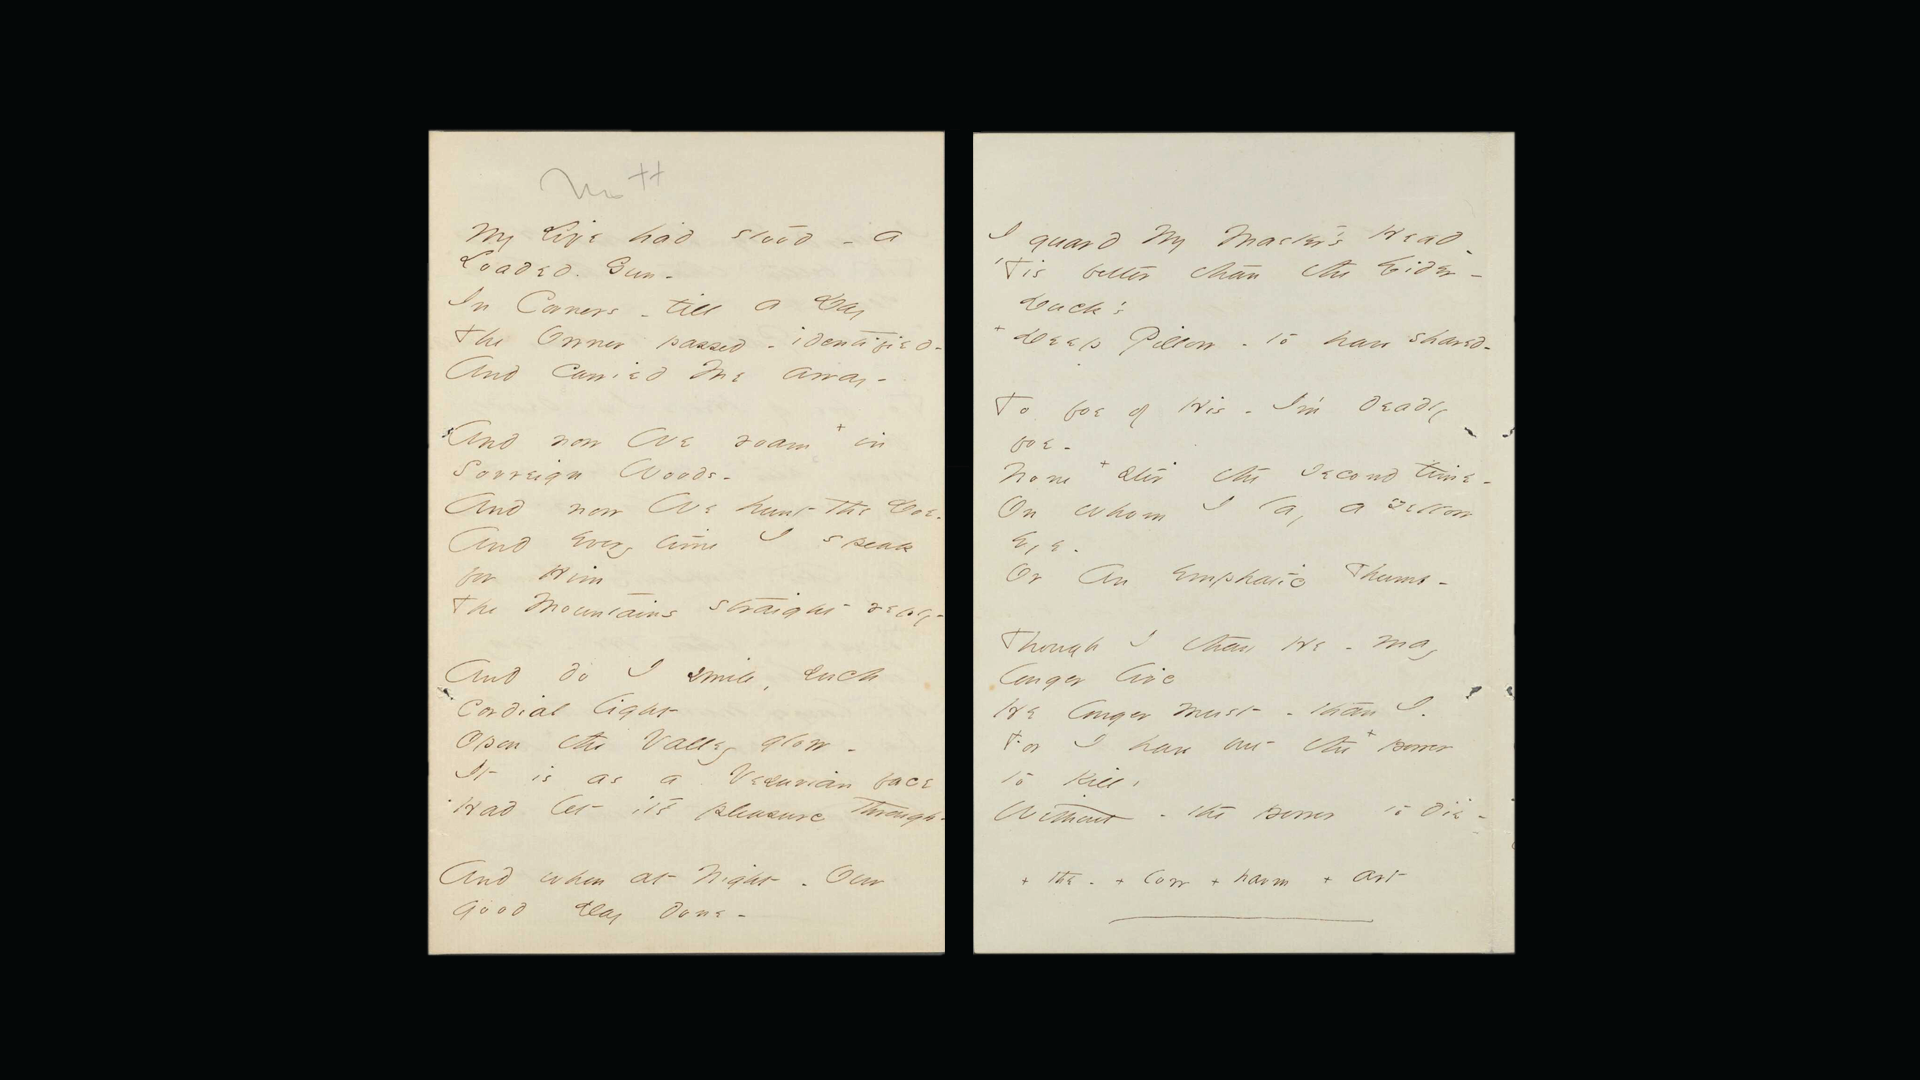 My Life had stood - a
Loaded Gun -
In Corners - till a Day
The Owner passed - identified -
And carried Me away -
And now We roam + in
Sovreign Woods -
And now We hunt the Doe -
And every time I speak
for Him
The Mountains straight reply -
And do I smile, such
cordial light
Opon the Valley glow -
It is as a Vesuvian face
Had let it's pleasure through -
And when at Night - Our
good Day done -
I guard My Master's Head -
'Tis better than the Eider -
Duck's
+ Deep Pillow - to have shared -
To foe of His - I'm deadly
foe -
None + stir the second time -
On whom I lay a Yellow
Eye -
Or an emphatic Thumb -
Though I than He - may
longer live
He longer must - than I -
For I have but the + power
to kill,
Without - the power to die -
+ the - + low + harm + art